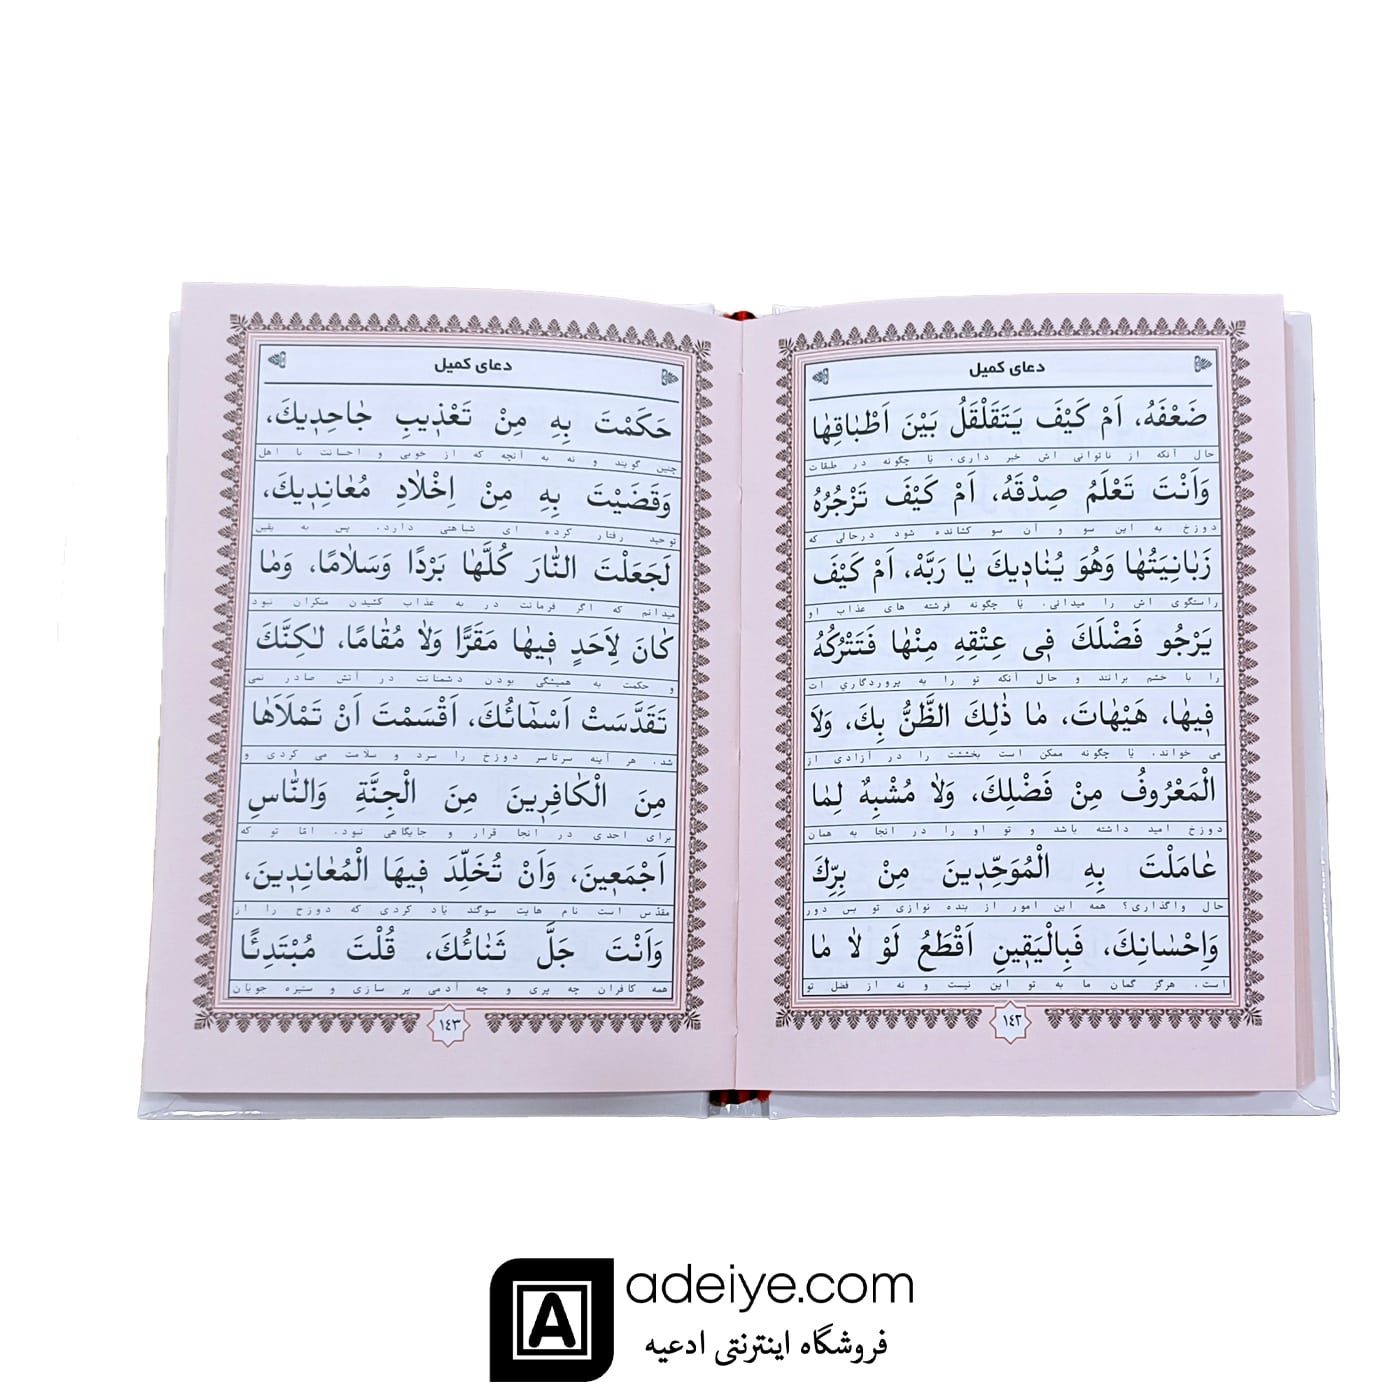 دعای کمیل
ضَعْفَهُ، اَمْ كَيْفَ يَتَقَلْقَلُ بَيْنَ اَطْبٰاقِهٰا
حال آنکه از ناتوانی اش خبر داری. یٰا چگونه در طبقات
وَاَنْتَ تَعْلَمُ صِدْقَهُ، اَمْ كَيْفَ تَزْجُرُهُ
دوزخ به این سو و آن سو کشانده شود درحالی که
زَبٰانِيَتُهٰا وَهُوَ يُنٰادٖيكَ يٰا رَبَّهْ، اَمْ كَيْفَ
راستگوی اش را میدانی. یٰا چگونه فرشته های عذاب او
يَرْجُو فَضْلَكَ فٖى عِتْقِهِ مِنْهٰا فَتَتْرُكُهُ
را با خشم برانند و حال آنکه تو را به پروردگاری ات
فٖيهٰا، هَيْهٰاتَ، مٰا ذٰلِكَ الظَّنُّ بِكَ، وَلَا
می خواند. یٰا چگونه ممکن است بخششت را در آزادی از
الْمَعْرُوفُ مِنْ فَضْلِكَ، وَلٰا مُشْبِهٌ لِمٰا
دوزخ امید داشته باشد و تو او را در آنجا به همان
عٰامَلْتَ بِهِ الْمُوَحِّدٖينَ مِنْ بِرِّكَ
حال واگذاری؟ همه این امور از بنده نوازی تو بس دور
وَاِحْسٰانِكَ، فَبِالْيَقٖينِ اَقْطَعُ لَوْ لٰا مٰا
است. هرگز گمان ما به تو این نیست و نه از فضل تو
١٤٢
دعای کمیل
حَكَمْتَ بِهِ مِنْ تَعْذٖيبِ جٰاحِدٖيكَ،
چنین گویند و نه به آنچه که از خوبی و احسانت با اهل
وَقَضَيْتَ بِهِ مِنْ اِخْلٰادِ مُعٰانِدٖيكَ،
توحید رفتار کرده ای شباهتی دارد. پس به یقین
لَجَعَلْتَ النّٰارَ كُلَّهٰا بَرْدًا وَسَلٰامًا، وَمٰا
میدانم که اگر فرمانت در به عذاب کشیدن منکران نبود
كٰانَ لِاَحَدٍ فٖيهٰا مَقَرًّا وَلٰا مُقٰامًا، لٰكِنَّكَ
و حکمت به همیشگی بودن دشمنانت در آتش صادر نمی
تَقَدَّسَتْ اَسْمٰٓائُكَ، اَقْسَمْتَ اَنْ تَمْلَاَهٰا
شد. هر آینه سرتاسر دوزخ را سرد و سلامت می کردی و
مِنَ الْكٰافِرٖينَ مِنَ الْجِنَّةِ وَالنّٰاسِ
برای احدی در آنجا قرار و جایگاهی نبود. امّا تو که
اَجْمَعٖينَ، وَاَنْ تُخَلِّدَ فٖيهَا الْمُعٰانِدٖينَ،
مقدّس است نام هایت سوگند یٰاد کردی که دوزخ را از
وَاَنْتَ جَلَّ ثَنٰائُكَ، قُلْتَ مُبْتَدِئًا
همه کافران چه پری و چه آدمی پر سازی و ستیزه جویان
١٤٣
A
adeiye.com
فروشگاه اینترنتی ادعیه